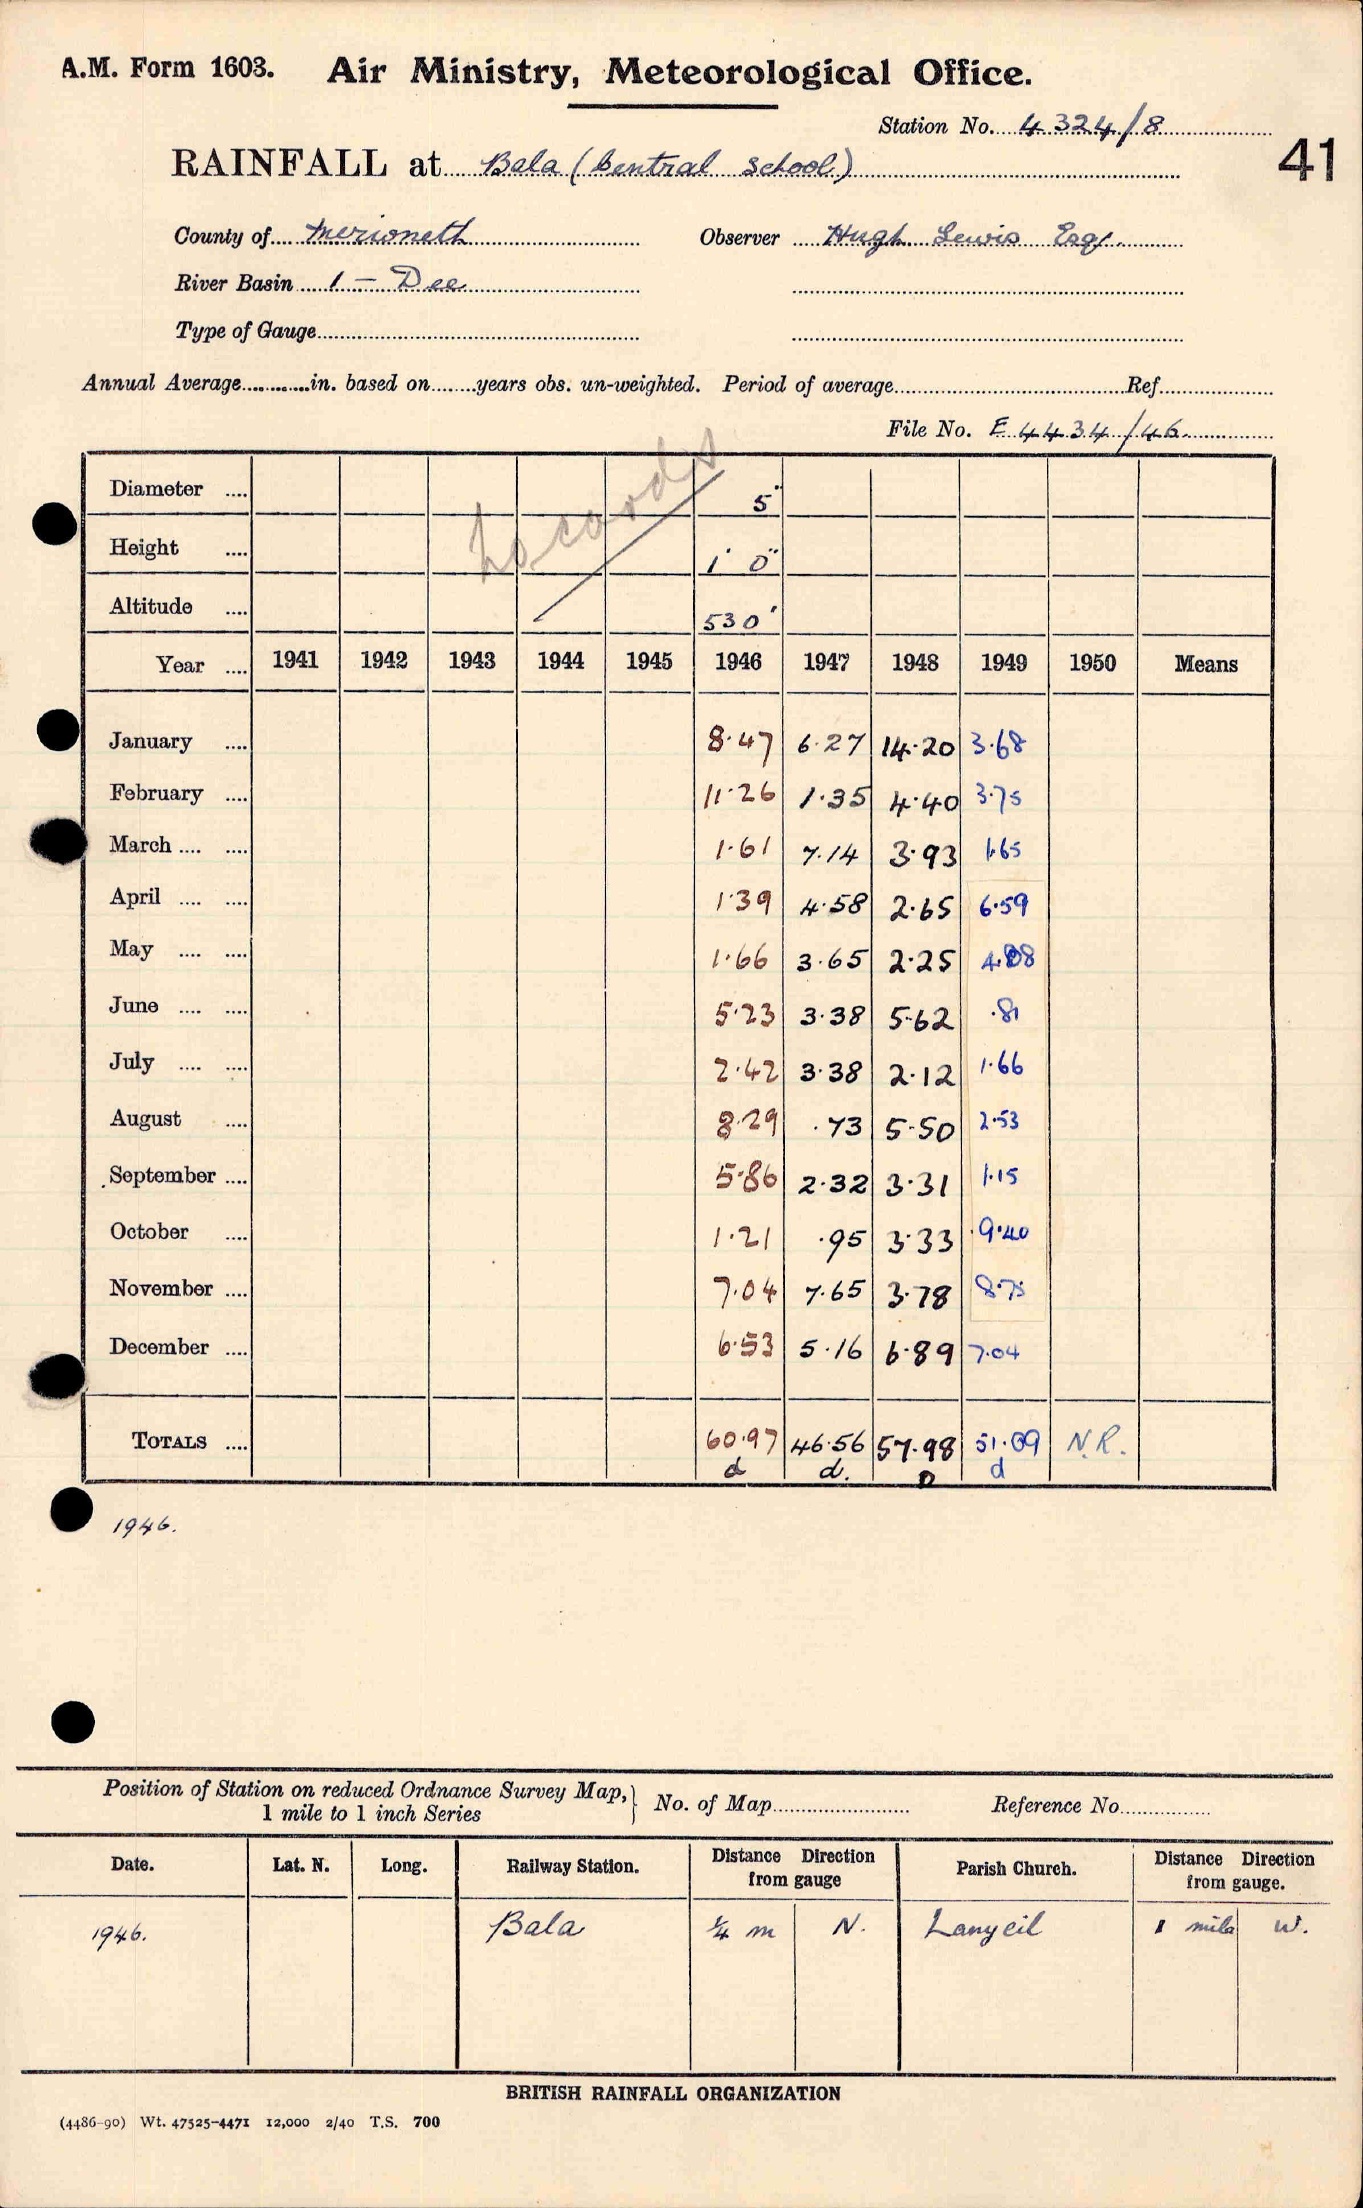 A.M. Form 1603. Air Ministry, Meteorological Office.
Station No. 4324/8
41
RAINFALL at Bala (Central School)
County of Merioneth Observer Hugh Lewis Esq.
River Basin 1 - Dee
Type of Gauge
Annual Average in. based on years obs. un-weighted. Period of average Ref.
File No. E 4434/46.
Diameter 5"
Height 1' 0"
Altitude 530'
Year 1941 1942 1943 1944 1945 1946 1947 1948 1949 1950 Means
January 8.47 6.27 14.20 3.68
February 11.26 1.35 4.40 3.75
March 1.61 7.14 3.93 1.65
April 1.39 4.58 2.65 6.59
May 1.66 3.65 2.25 4.08
June 5.23 3.38 5.62 .81
July 2.42 3.38 2.12 1.66
August 8.29 .73 5.50 2.53
September 5.86 2.32 3.31 1.15
October 1.21 .95 3.33 9.40
November 7.04 7.65 3.78 8.75
December 6.53 5.16 6.89 7.04
TOTALS 60.97 46.56 57.98 51.09 N.R.
d d. D d
1946.
Position of Station on reduced Ordnance Survey Map, 1 mile to 1 inch Series No. of Map Reference No.
Date. Lat. N. Long. Railway Station. Distance Direction from gauge Parish Church. Distance Direction from gauge.
1946. Bala ¼ m N. Lanycil 1 mile W.
BRITISH RAINFALL ORGANIZATION
(4486-90) Wt. 47525-4471 12,000 2/40 T.S. 700